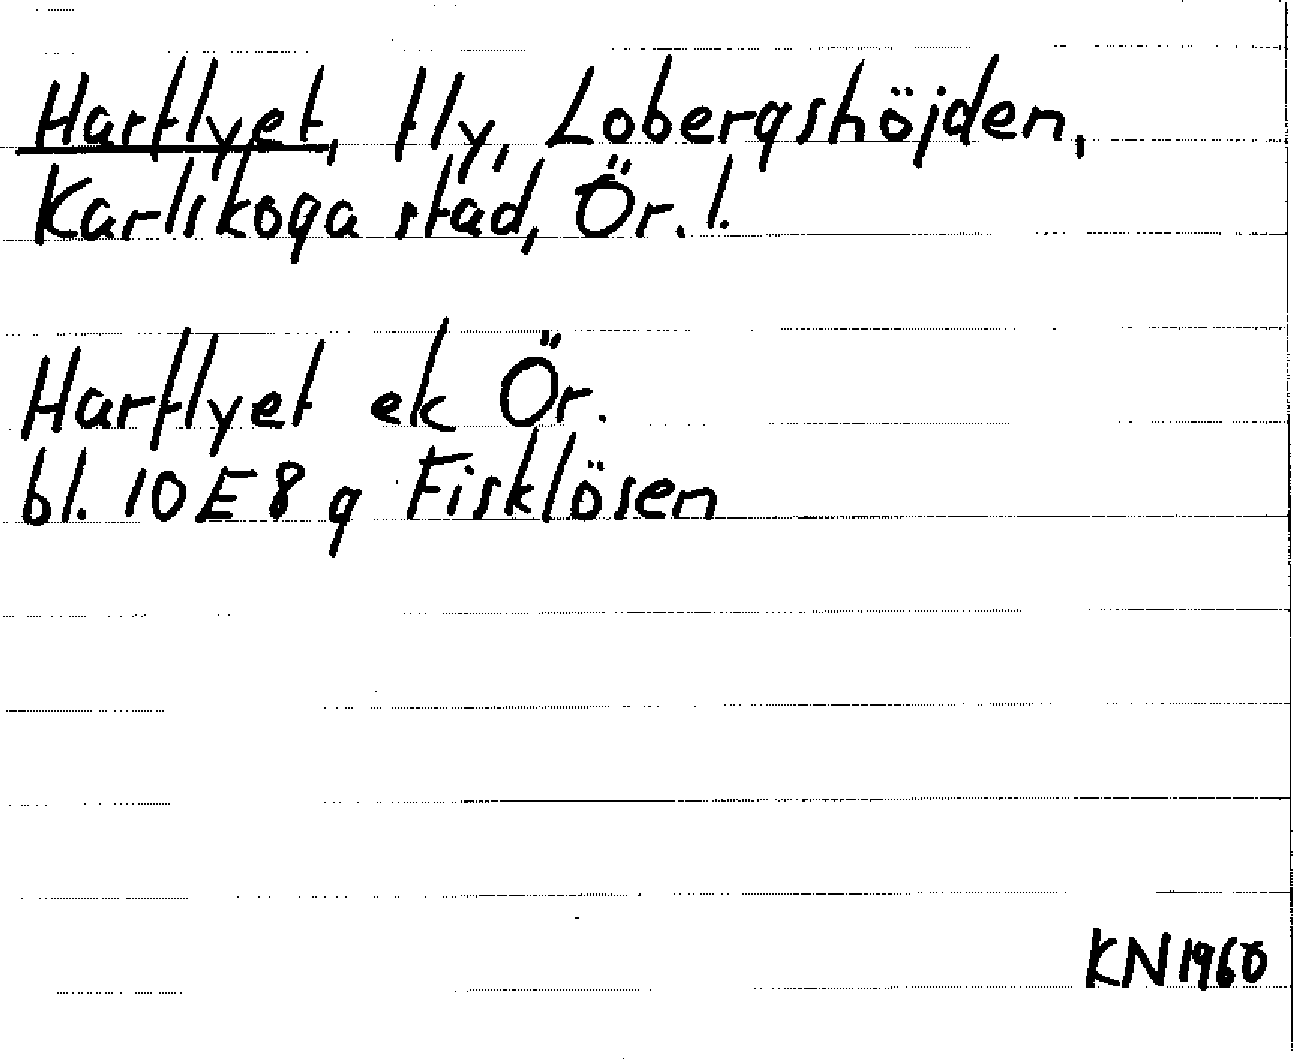 Harflyet, fly, Lobergshöjden,
Karlskoga stad, Ör. l.
Harflyet ek Ör.
bl. 10E8g Fisklösen
KN1960